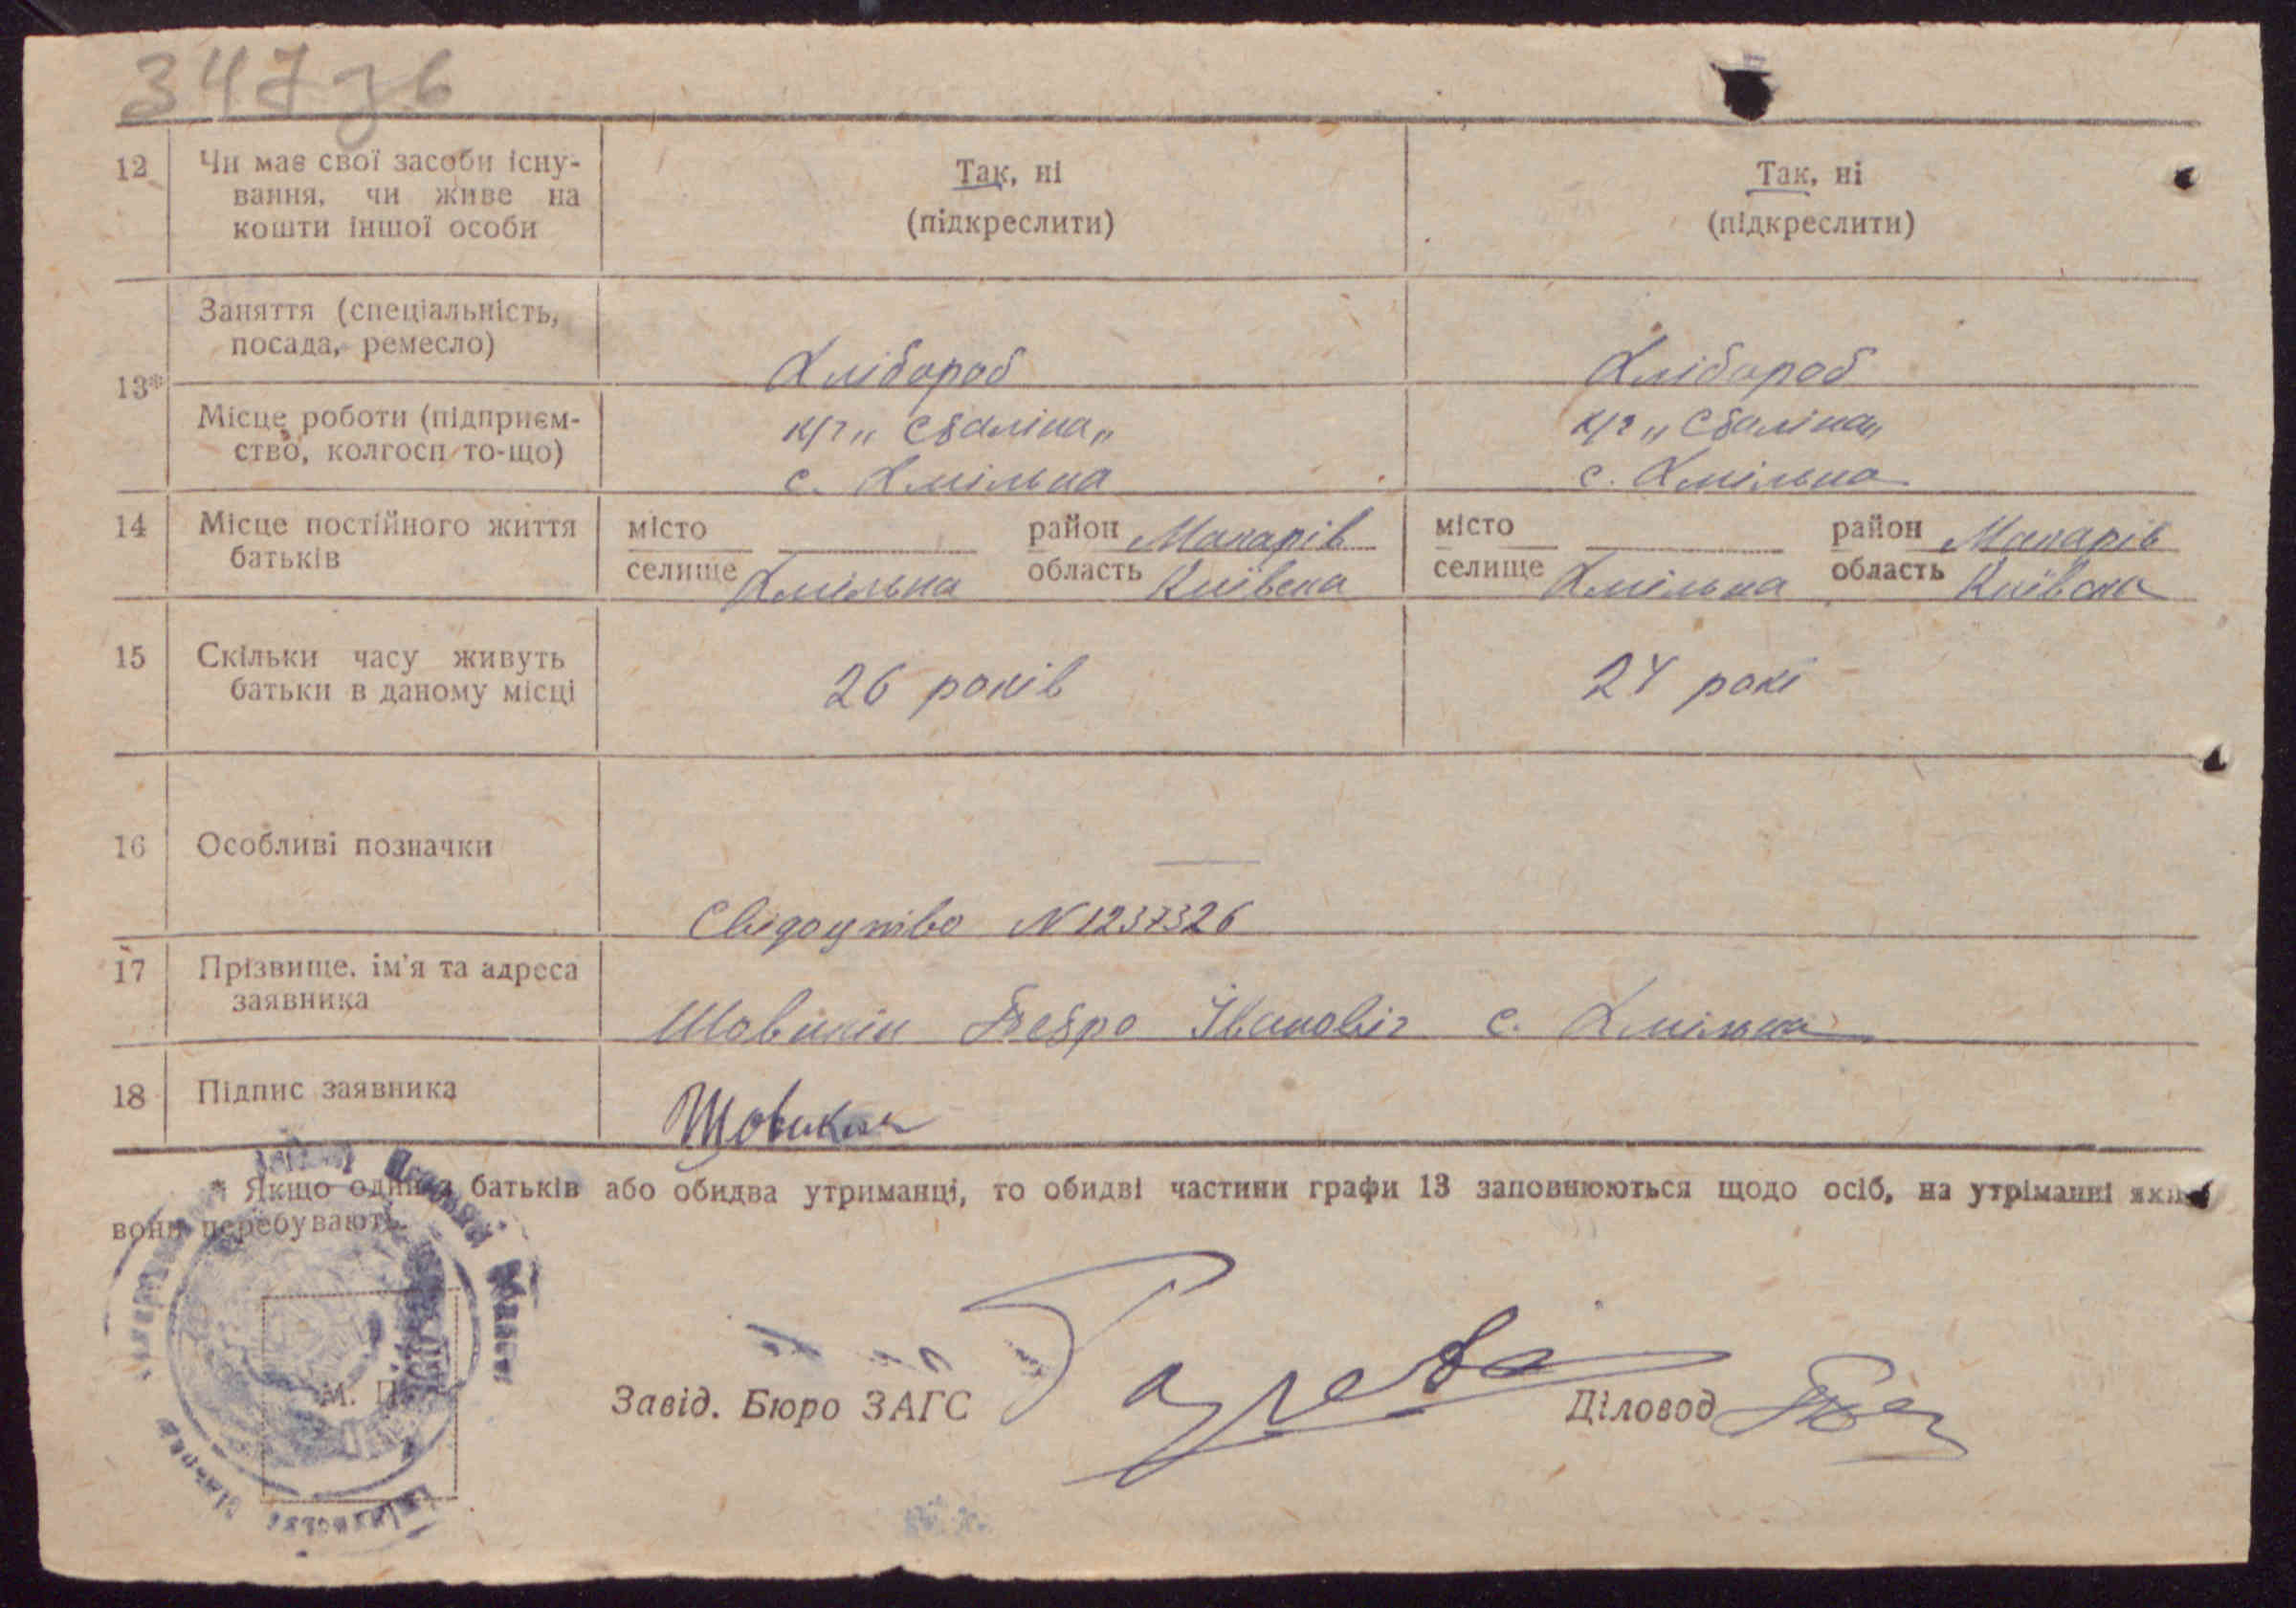 347 зв
12 Чи має свої засоби існу-
вання, чи живе на
кошти іншої особи
Так, ні
(підкреслити)
Так, ні
(підкреслити)
13*
Заняття (спеціальність,
посада, ремесло)
Хлібороб
Хлібороб
Місце роботи (підприєм-
ство, колгосп то-що)
к/г „Сталіна„
с. Хмільна
к/г „Сталіна„
с. Хмільна
14 Місце постійного життя
батьків
місто район Макарів
селище Хмільна область Київска
місто район Макарів
селище Хмільна область Київска
15 Скільки часу живуть
батьки в даному місці
26 років
24 рокі
16 Особливі позначки
Свідоцтво N 1237326
17 Прізвище, ім'я та адреса
заявника
Шовкін Петро Івановіч с. Хмільна
18 Підпис заявника
* Якщо один з батьків або обидва утриманці, то обидві частини графи 13 заповнюються щодо осіб, на утріманні яких
вони перебувають.
М. П.
Завід. Бюро ЗАГС
Діловод